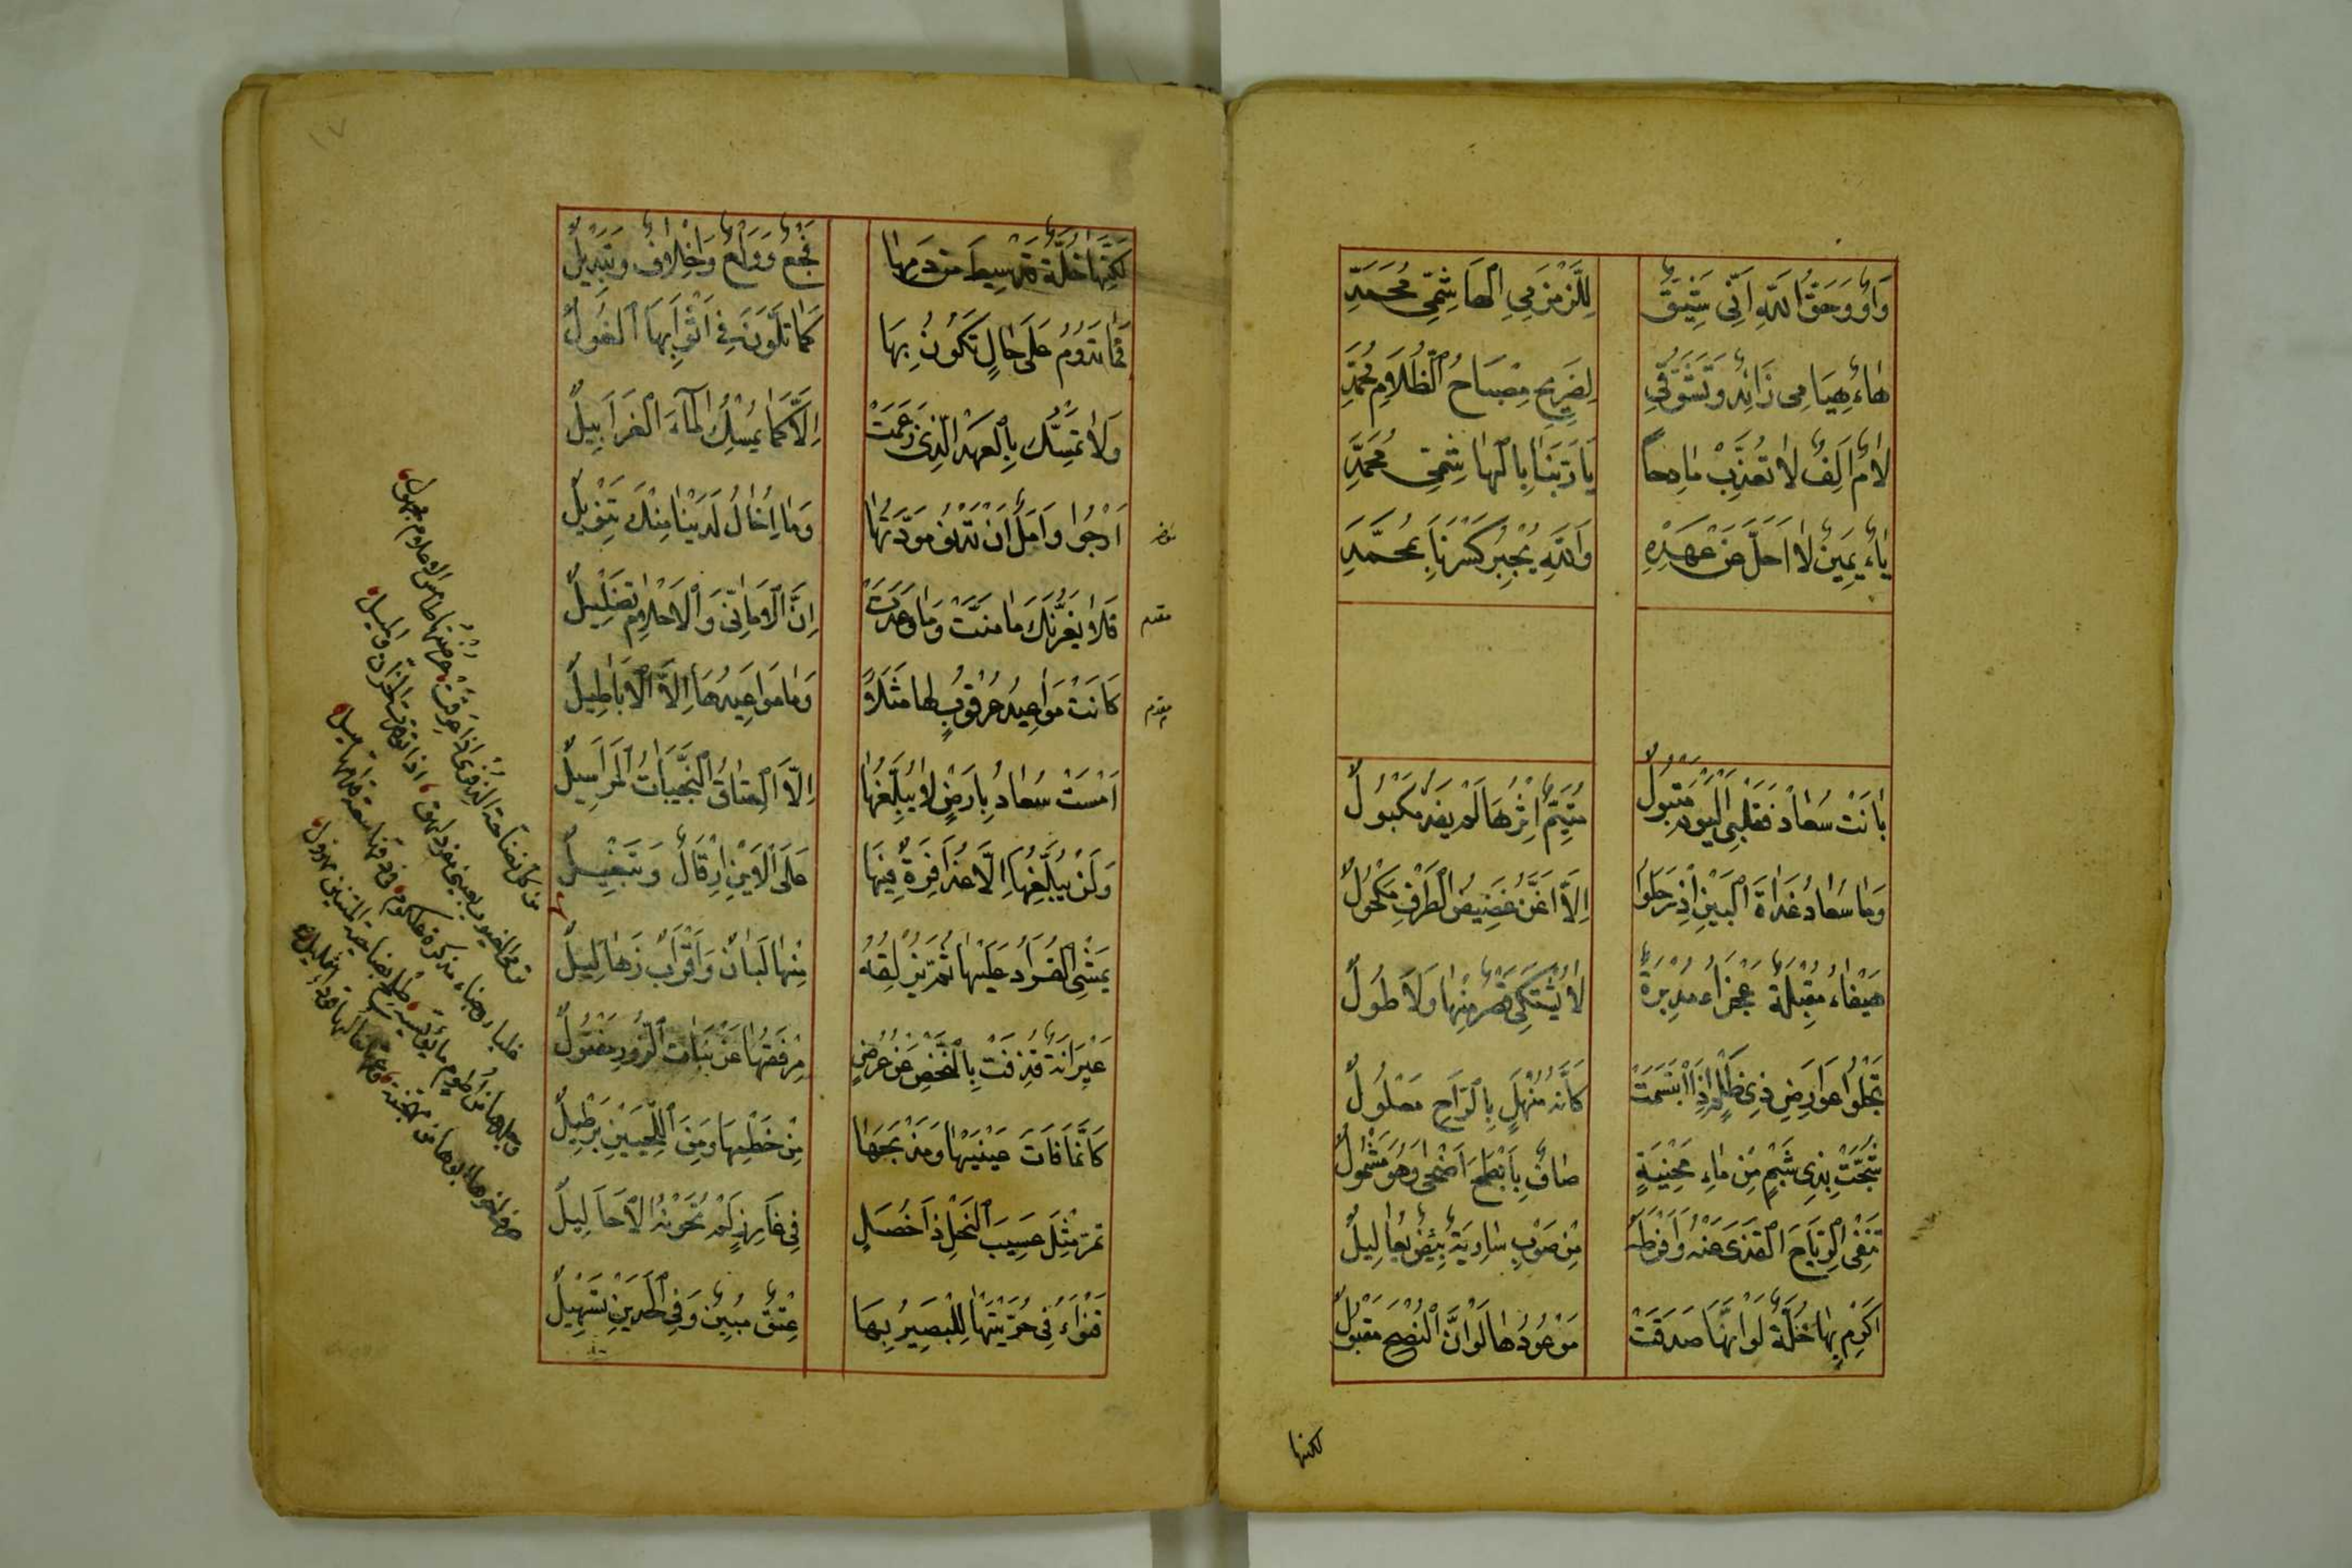 وَاوٌ وَحَقُّ اللهِ اَنِّى شَيِّقٌ لِلزَّمْزَمِى الهَاشِمِىِّ مُحَمَّدِ
هٰاءٌ هِيَامِى زَائِدٌ وَتَشَوُّقِى لِضَرِيحِ مِصْبَاحُ الظَّلَامِ مُحَمَّدِ
لَامٌ اَلِفٌ لَا تُعَذِّبْ مَادِحاً يَا رَبَّنَا بِالهَاشِمِىِّ مُحَمَّدِ
يٰاءٌ يَمِينٌ لَا اَحَلَّ عَنْ عَهْدِهِ وَاللهِ يُجْبِرُ كَسْرَنَا بِمُحَمَّدِ
بَانَتْ سُعَادُ فَقَلْبِى اليَوْمَ مَتْبُولٌ مُتَيَّمٌ اِثْرَهَا لَمْ يَفْدِ مَكْبُولٌ
وَمَا سُعَادُ غَدَاةَ البَيْنِ اِذْ رَحَلُوا اِلَّا اَغَنَّ غَضِيضُ الطَّرْفِ مَكْحُولٌ
هَيْفَاءُ مُقْبِلَةً عَجْزَاءُ مُدْبِرَةً لَا يُشْتَكَى قِصَرٌ مِنْهَا وَلَا طُولٌ
تَجْلُوا عَوَارِضَ ذِى ظَلْمٍ اِذَا ابْتَسَمَتْ كَاَنَّهُ مُنْهَلٌ بِالرَّاحِ مَعْلُولٌ
شُجَّتْ بِذِى شَبَمٍ مِنْ مَاءِ مَحْنِيَةٍ صَافٍ بِاَبْطَحَ اَضْحَى وَهُوَ مَشْمُولٌ
تَنْفِى الرِّيَاحَ القَذَى عَنْهُ وَاَفْرَطَهُ مِنْ صَوْبِ سَارِيَةٍ بِيضٌ يَعَالِيلٌ
اَكْرِمْ بِهَا خُلَّةً لَوْ اَنَّهَا صَدَقَتْ مَوْعُودَهَا لَوْ اَنَّ النُّصْحَ مَقْبُولٌ
لكنها
١٧
لَكِنَّهَا خُلَّةٌ قَدْ سِيطَ مِنْ دَمِهَا فَجْعٌ وَوَلْعٌ وَاِخْلَافٌ وَتَبْدِيلٌ
فَمَا تَدُومُ عَلَى حَالٍ تَكُونُ بِهَا كَمَا تَلَوَّنُ فِى اَثْوَابِهَا الغُولٌ
وَلَا تَمَسَّكُ بِالعَهْدِ الَّذِى زَعَمَتْ اِلَّا كَمَا يُمْسِكُ المَاءَ الغَرَابِيلٌ
اَرْجُوا وَآمَلُ اَنْ تَدْنُو مَوَدَّتُهَا وَمَا اِخَالُ لَدَيْنَا مِنْكَ تَنْوِيلٌ
مؤخر
فَلَا يَغُرَّنَكَ مَا مَنَّتْ وَمَا وَعَدَتْ اِنَّ الاَمَانِىَّ وَالاَحْلَامَ تَضْلِيلٌ
مقدم
كَانَتْ مَوَاعِيدُ عُرْقُوبٍ لَهَا مَثَلَاً وَمَا مَوَاعِيدُهَا اِلَّا الاَبَاطِيلٌ
مقدم
اَمْسَتْ سُعَادُ بِاَرْضٍ لَا يُبَلِّغُهَا اِلَّا العِتَاقُ النَّجِيبَاتُ المَرَاسِيلٌ
وَلَنْ يُبَلِّغُهَا اِلَّا عُذَافِرَةٌ فِيهَا عَلَى الاَيْنِ اِرْقَالٌ وَتَبْغِيلٌ
يَمْشِى القُرَادُ عَلَيْهَا ثُمَّ يُزْلِقُهُ مِنْهَا لَبَانٌ وَاَقْرَابٌ زَهَالِيلٌ
عَيْرَانَةٌ قُذِفَتْ بِالنَّحْضِ عَنْ عُرُضٍ مِرْفَقُهَا عَنْ بَنَاتِ الزُّورِ مَفْتُولٌ
كَاَنَّمَا فَاتَ عَيْنَيْهَا وَمَذْبَحَهَا مِنْ خَطْمِهَا وَمِنَ اللَّحْيَيْنِ بِرْطِيلٌ
تُمِرُّ مِثْلَ عَسِيبِ النَّخْلِ ذَا خُصَلٍ فِى غَارِزٍ لَمْ تَخَوَّنْهُ الاَحَالِيلٌ
قَنْوَاءُ فِى حُرَّيْتَهَا لِلْبَصِيرِ بِهَا عِتْقٌ مُبِينٌ وَفِى الخَدَّيْنِ تَسْهِيلٌ
من كل نضاحة الذفرى اذا عرقت عرضتها طامس الاعلام مجهول
ترمى الغيوب بعينى مفرد لهق اذا توقدت الحزان والميل
غلباء وجناء علكوم مذكرة فى دفها سعة قدامها ميل
وجلدها من اطوم ما يؤيسه طلح بضاحية المتنين مهزول
حرف اخوها ابوها من مهجنة وعمها خالها قوداء شمليل